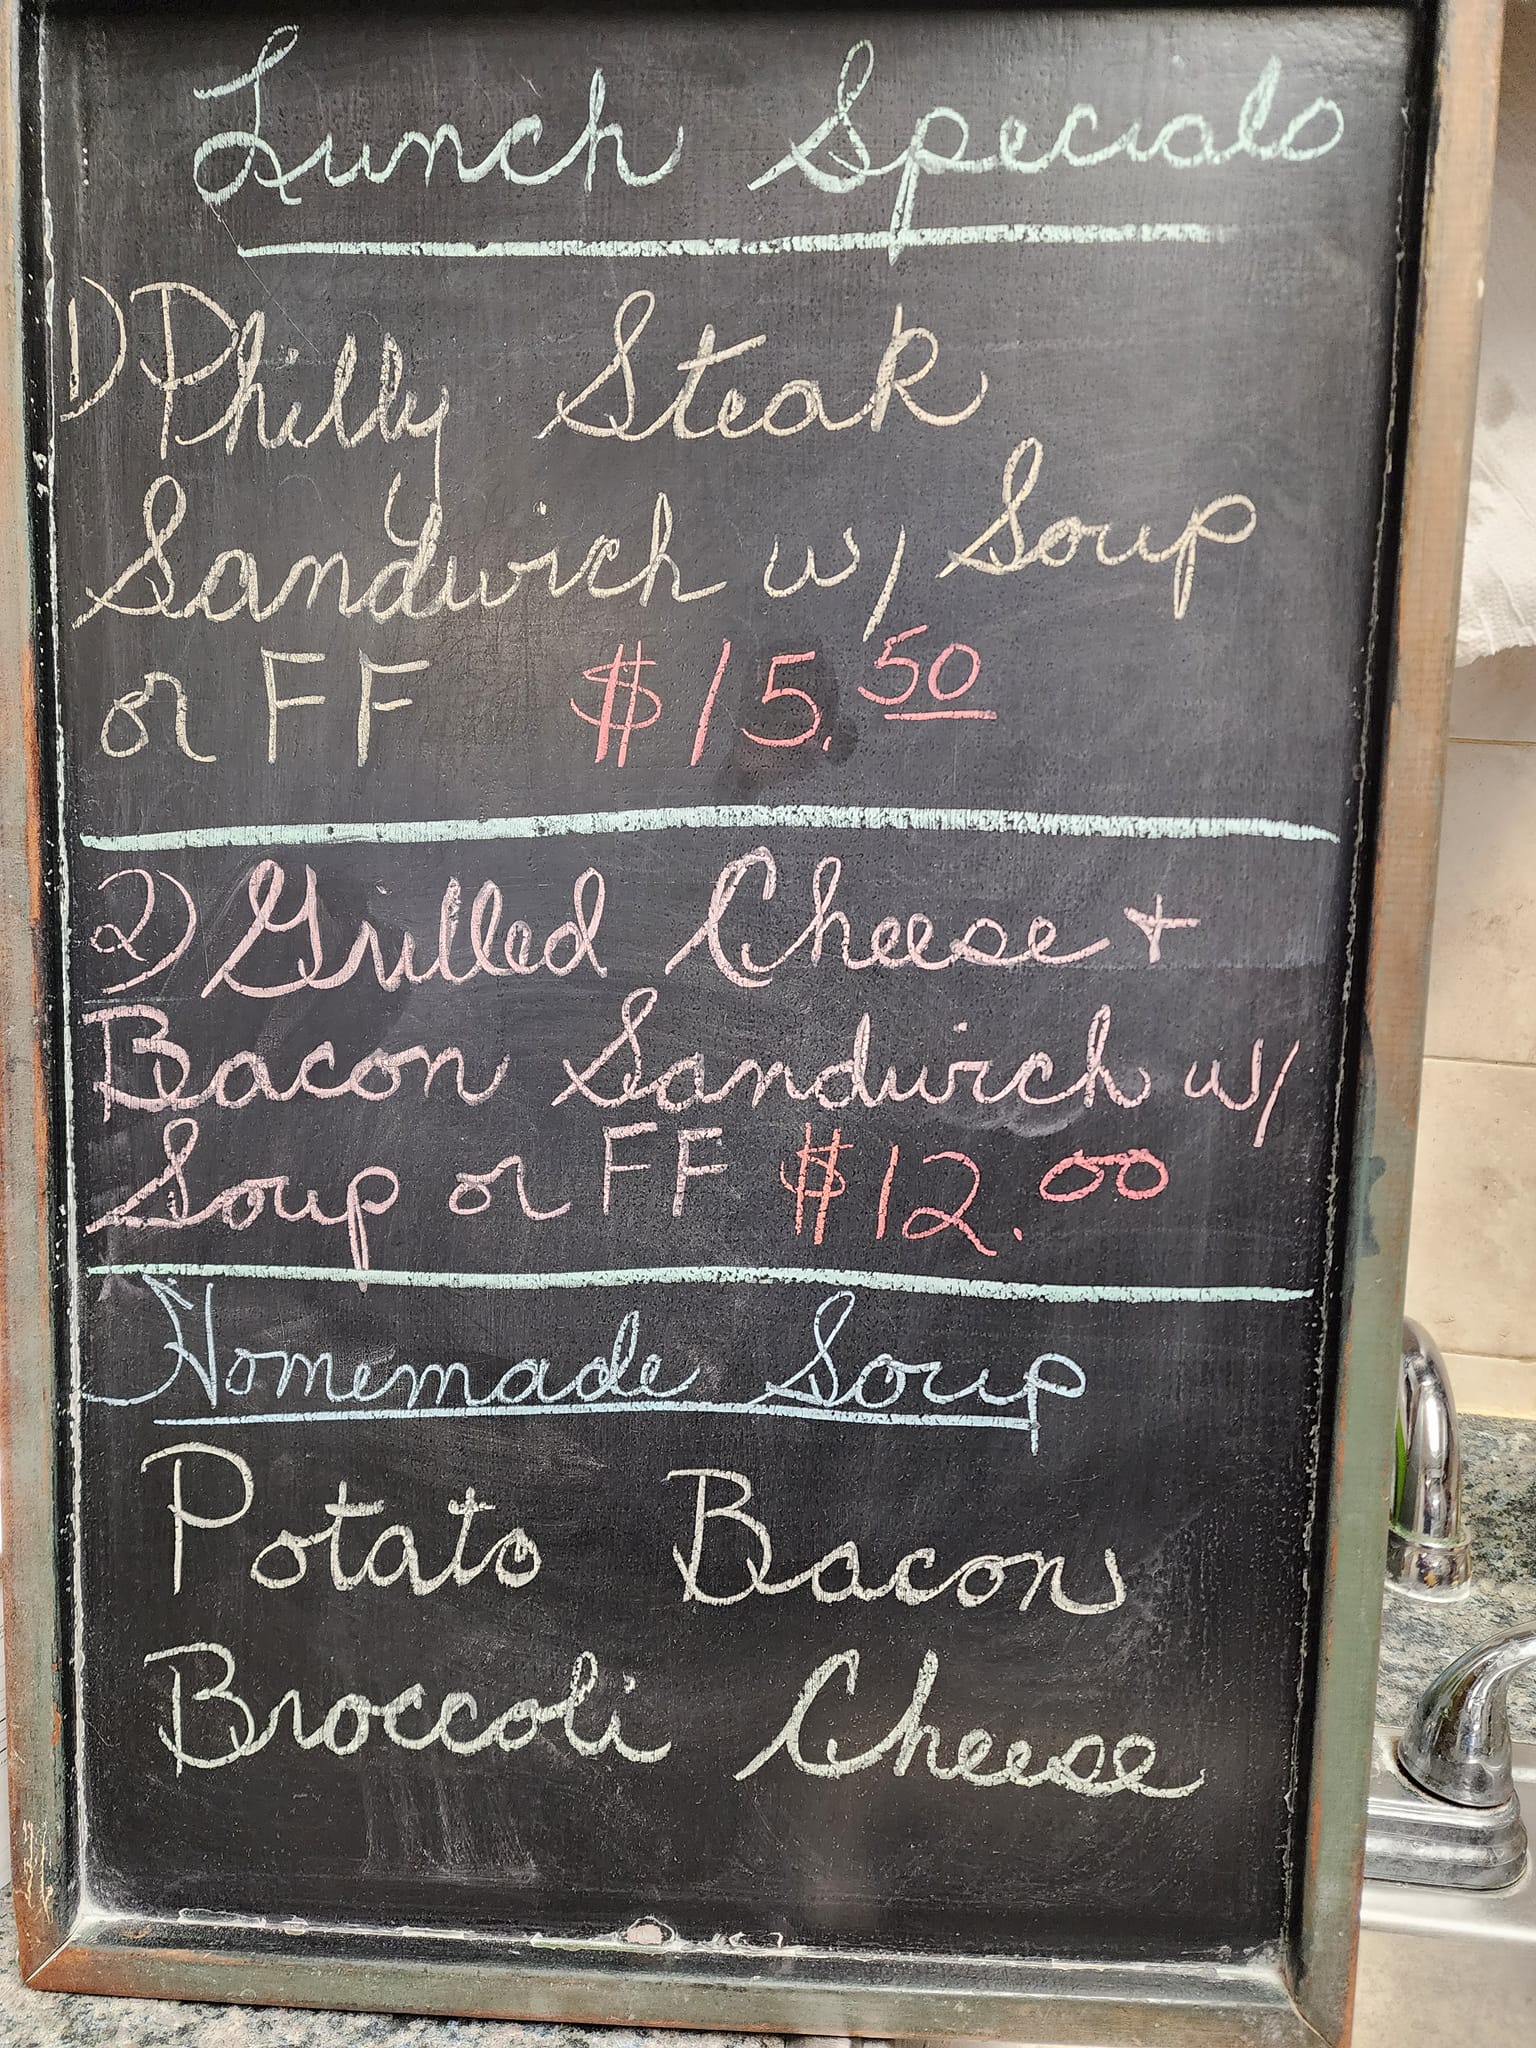 Lunch Specials
1) Philly Steak
Sandwich w/ Soup
or FF $15.50
2) Grilled Cheese +
Bacon Sandwich w/
Soup or FF $12.00
Homemade Soup
Potato Bacon
Broccoli Cheese